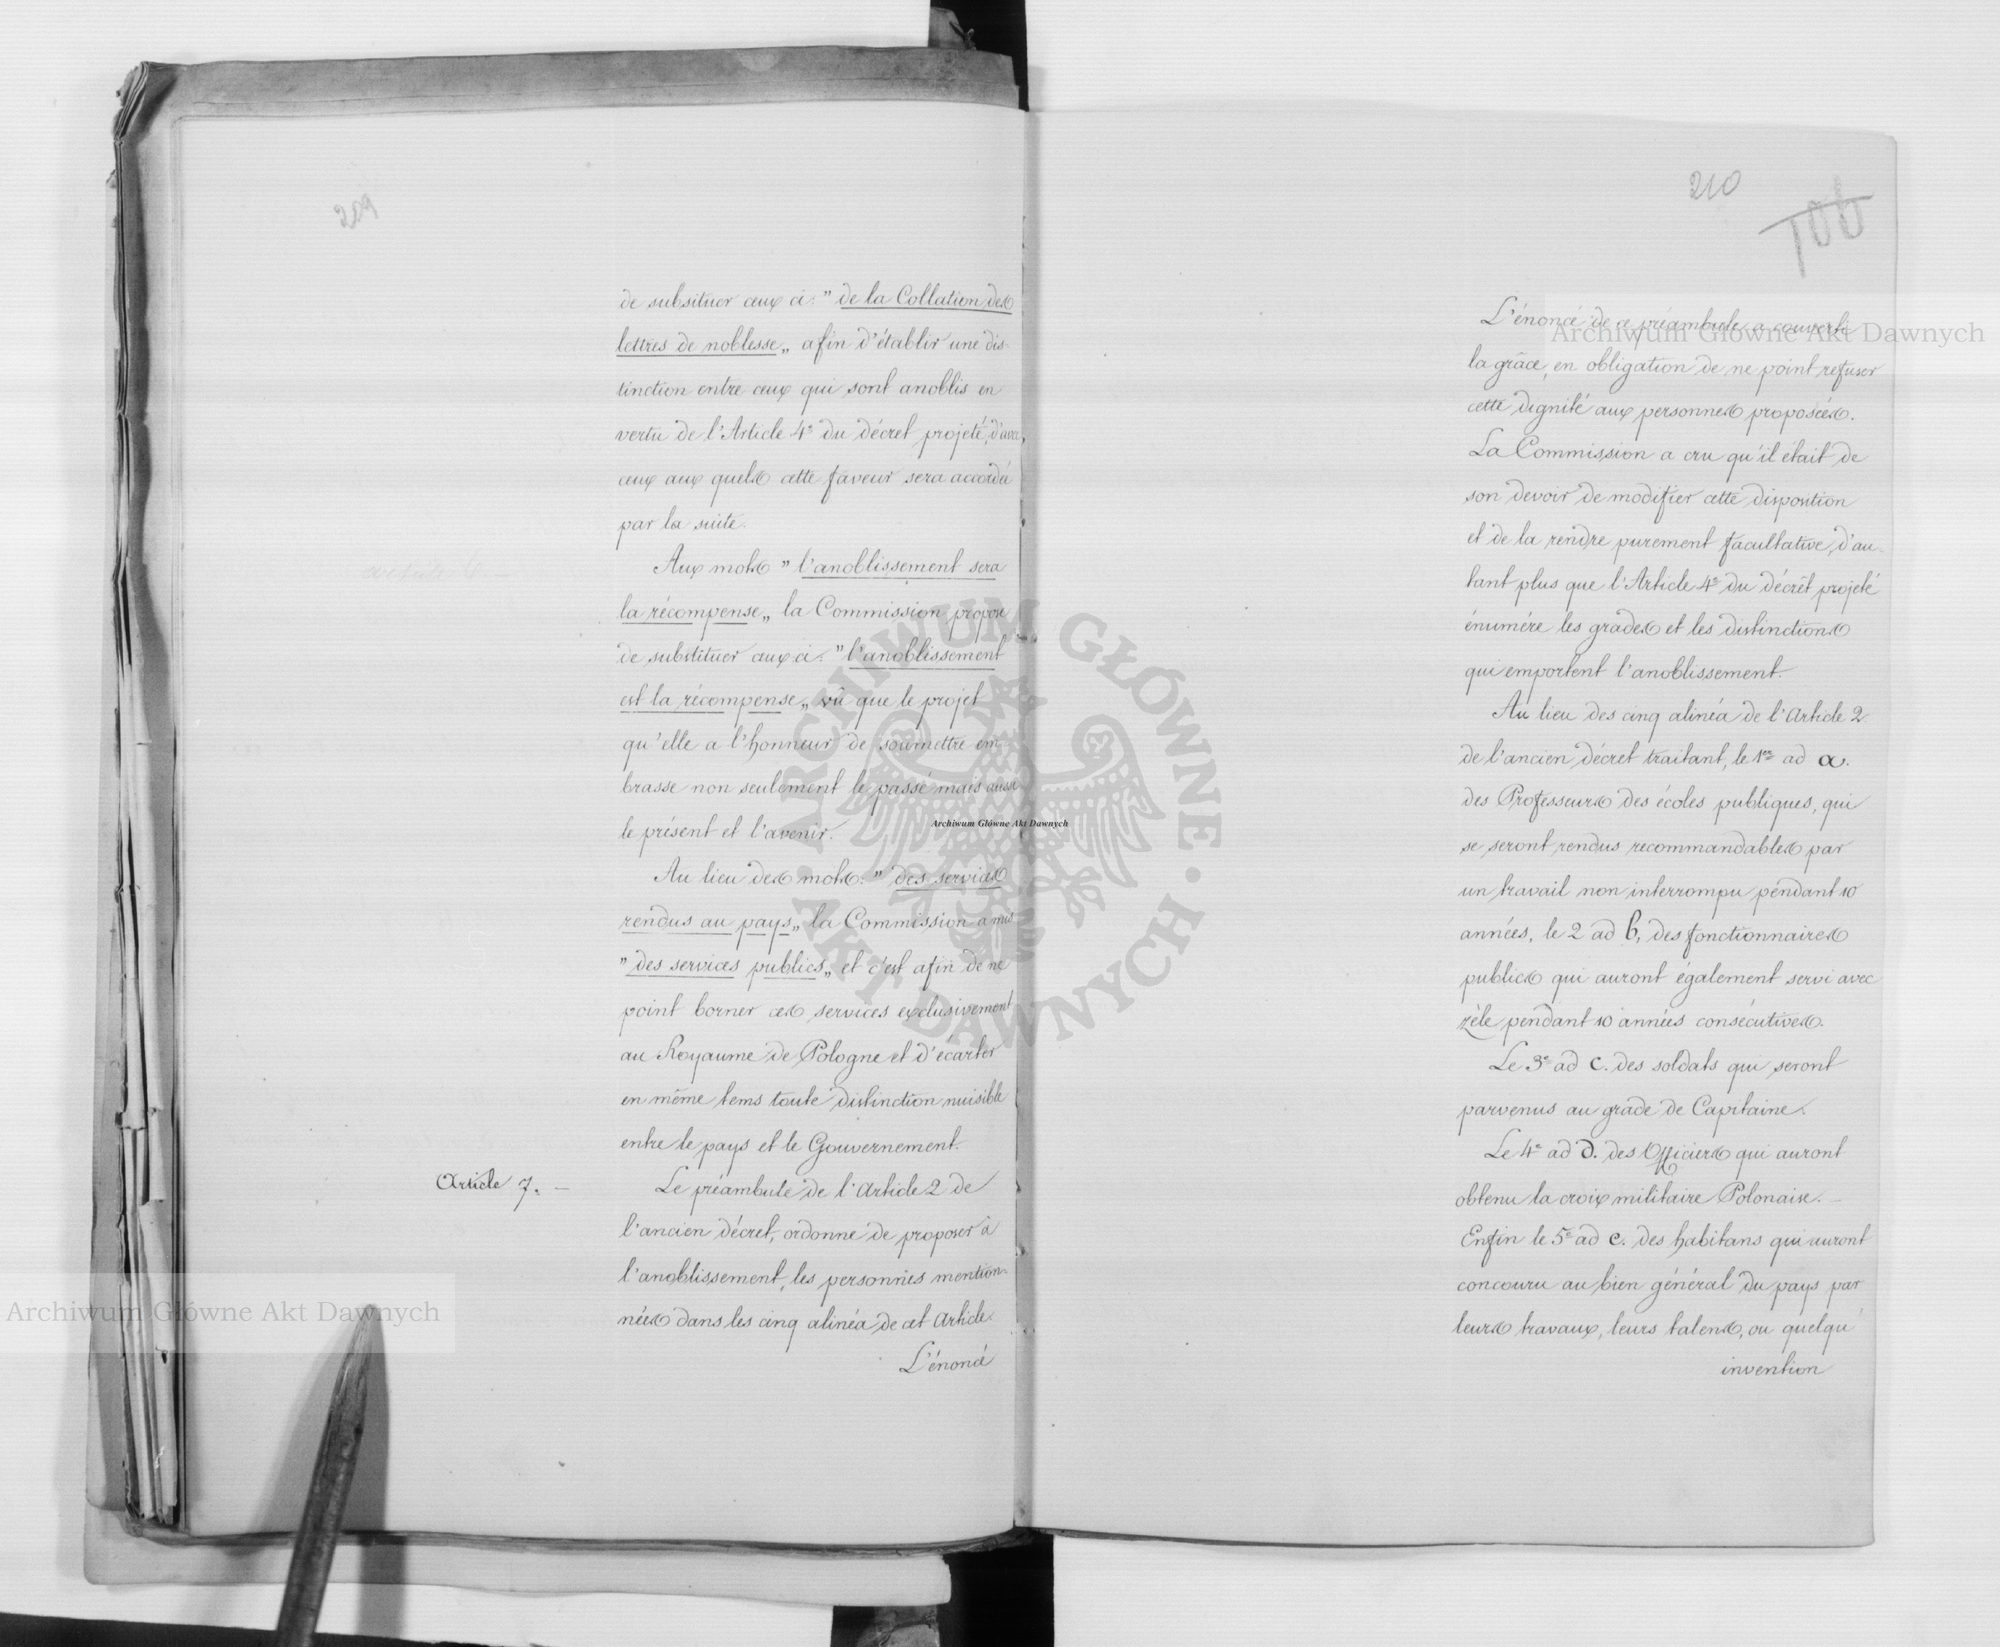 209
de subsituer ceux ci: "de la Collation des
lettres de noblesse„ afin d'établir une dis-
tinction entre ceux qui sont anoblis en
vertu de l'Article 4e du décret projeté, d'avec
ceux aux quels cette faveur sera accordée
par la suite.
Aux mots "l'anoblissement sera
la récompense„ la Commission propose
de substituer ceux ci: "l'anoblissement
est la récompense„ vû que le projet
qu'elle a l'honneur de soumettre em-
brasse non seulement le passé mais aussi
le présent et l'avenir.
Au lieu des mots: "des services
rendus au pays„ la Commission a mis
"des services publics„ et c'est afin de ne
point borner ces services exclusivement
au Royaume de Pologne et d'écarter
en même tems toute distinction nuisible
entre le pays et le Gouvernement.
Article 7. —
Le préambule de l'Article 2 de
l'ancien décret, ordonne de proposer à
l'anoblissement, les personnes mention-
nées dans les cinq alinéa de cet Article.
L'énoncé
210
106
L'énoncé de ce préambule a converti
la grâce, en obligation de ne point refuser
cette dignité aux personnes proposées.
La Commission a cru qu'il était de
son devoir de modifier cette disposition
et de la rendre purement facultative, d'au-
tant plus que l'Article 4e du décrêt projeté
énumére les grades et les distinctions
qui emportent l'anoblissement.
Au lieu des cinq alinéa de l'Article 2
de l'ancien décret traitant, le 1er ad a.
des Professeurs des écoles publiques, qui
se seront rendus recommandables par
un travail non interrompu pendant 10
années, le 2 ad b, des fonctionnaires
publics qui auront également servi avec
zèle pendant 10 années consécutives.
Le 3e ad c. des soldats qui seront
parvenus au grade de Capitaine.
Le 4e ad d. des Officiers qui auront
obtenu la croix militaire Polonaise. —
Enfin le 5e ad e. des habitans qui auront
concouru au bien général du pays par
leurs travaux, leurs talens, ou quelqu'
invention
Archiwum Główne Akt Dawnych
Archiwum Główne Akt Dawnych
Archiwum Główne Akt Dawnych
ARCHIWUM GŁÓWNE · AKT DAWNYCH ·